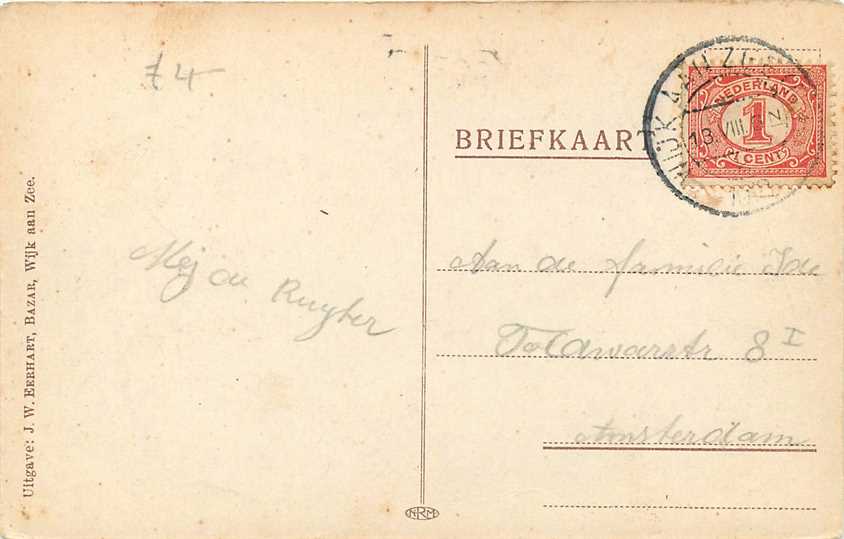 74
BRIEFKAART
WIJK AAN ZEE
13 VIII
NEDERLAND
1
CENT
Mej de Ruyter
Aan de familie
8 I
Amsterdam
Uitgave: J. W. EERHART, BAZAR, Wijk aan Zee.
NRM